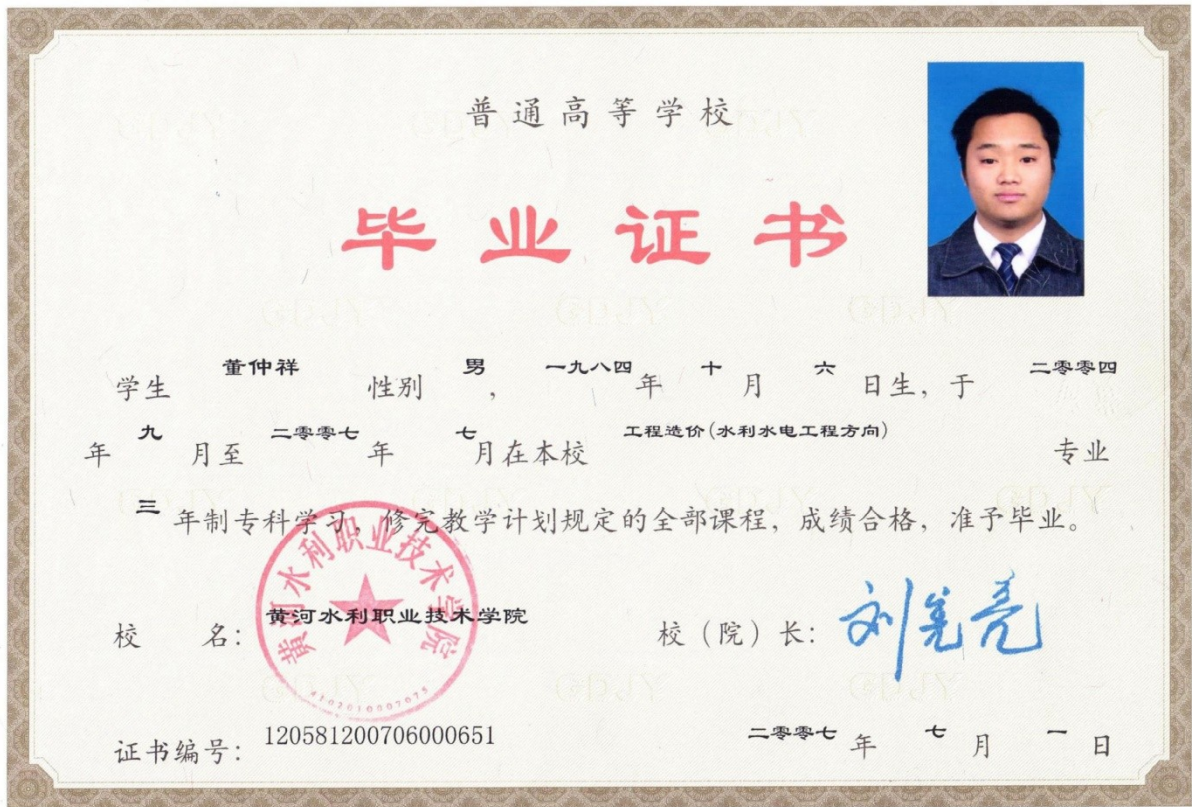 普通高等学校
毕业证书
学生 董仲祥 性别 男，一九八四年 十 月 六 日生，于 二零零四
年 九 月至 二零零七 年 七 月在本校 工程造价(水利水电工程方向) 专业
三 年制专科学习，修完教学计划规定的全部课程，成绩合格，准予毕业。
黄河水利职业技术学院
4102010007075
校 名：黄河水利职业技术学院 校（院）长：
证书编号：120581200706000651 二零零七 年 七 月 一 日